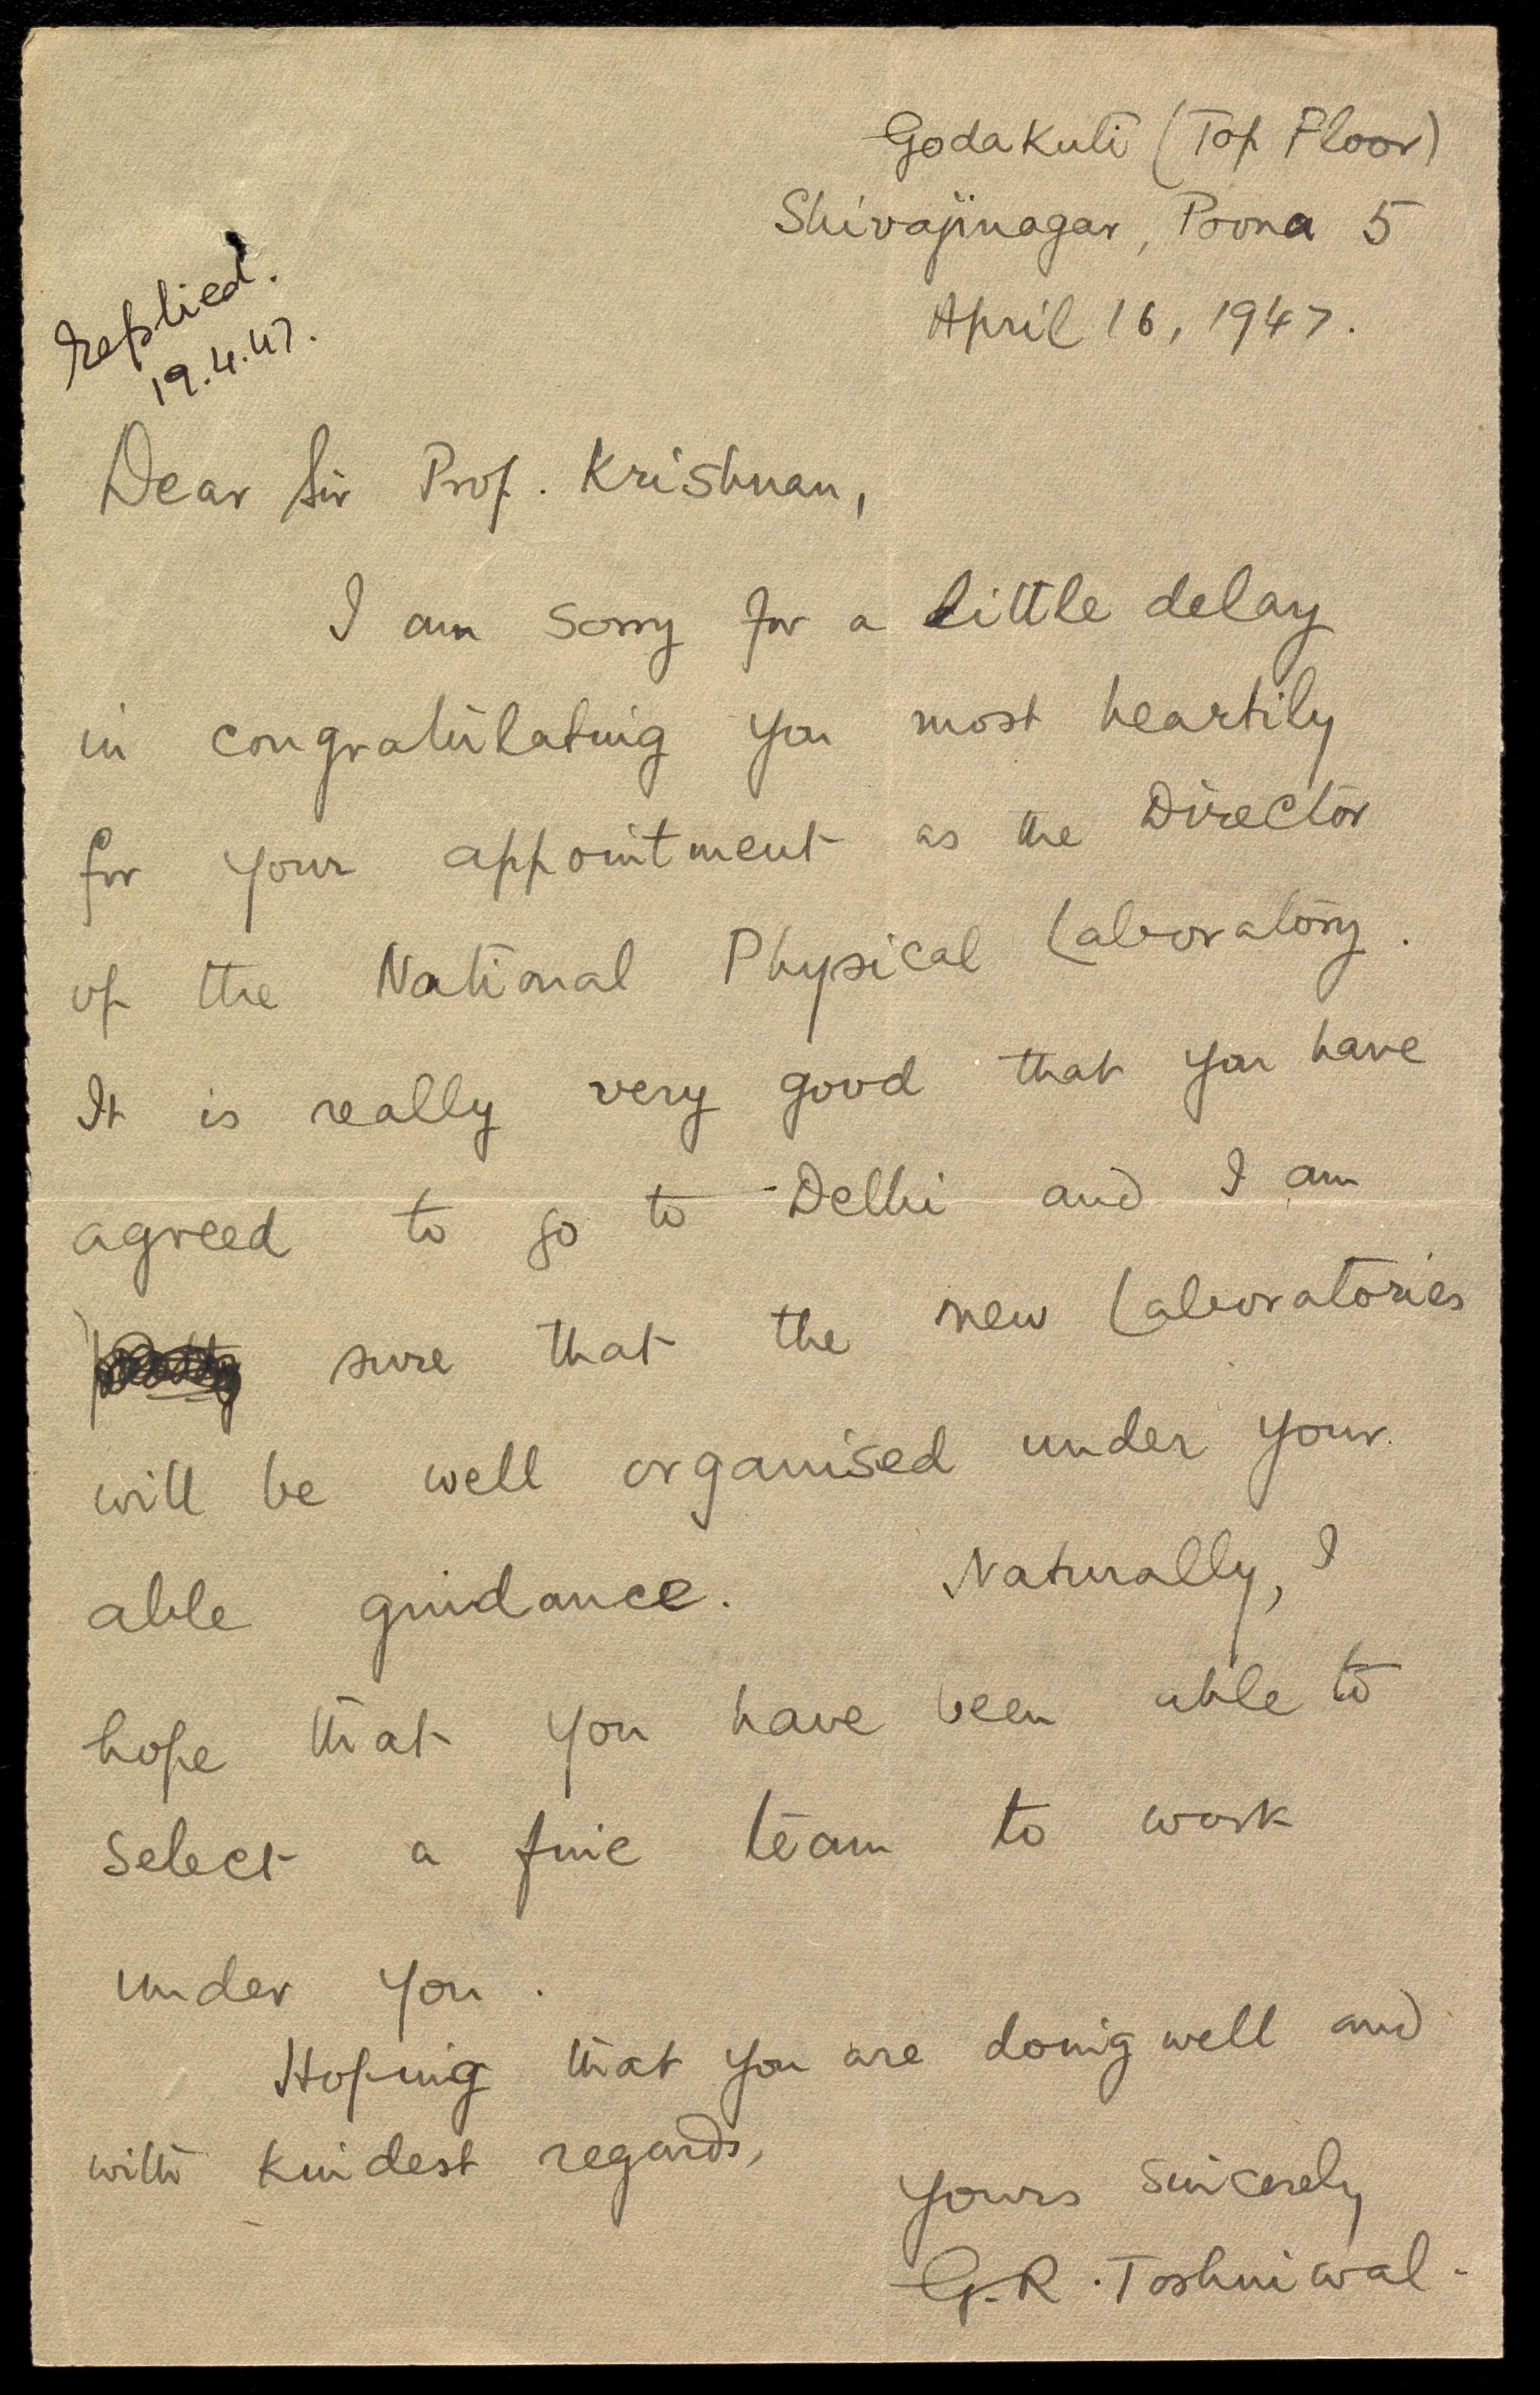 Godakuti (Top Floor)
Shivajinagar, Poona 5
April 16, 1947.
Replied.
19.4.47.
Dear Sir Prof. Krishnan,
I am sorry for a little delay
in congratulating you most heartily
for your appointment as the Director
of the National Physical Laboratory.
It is really very good that you have
agreed to go to Delhi and I am
sure that the new Laboratories
will be well organised under your
able guidance. Naturally, I
hope that you have been able to
select a fine team to work
under you.
Hoping that you are doing well and
with kindest regards,
Yours sincerely
G.R. Toshniwal.